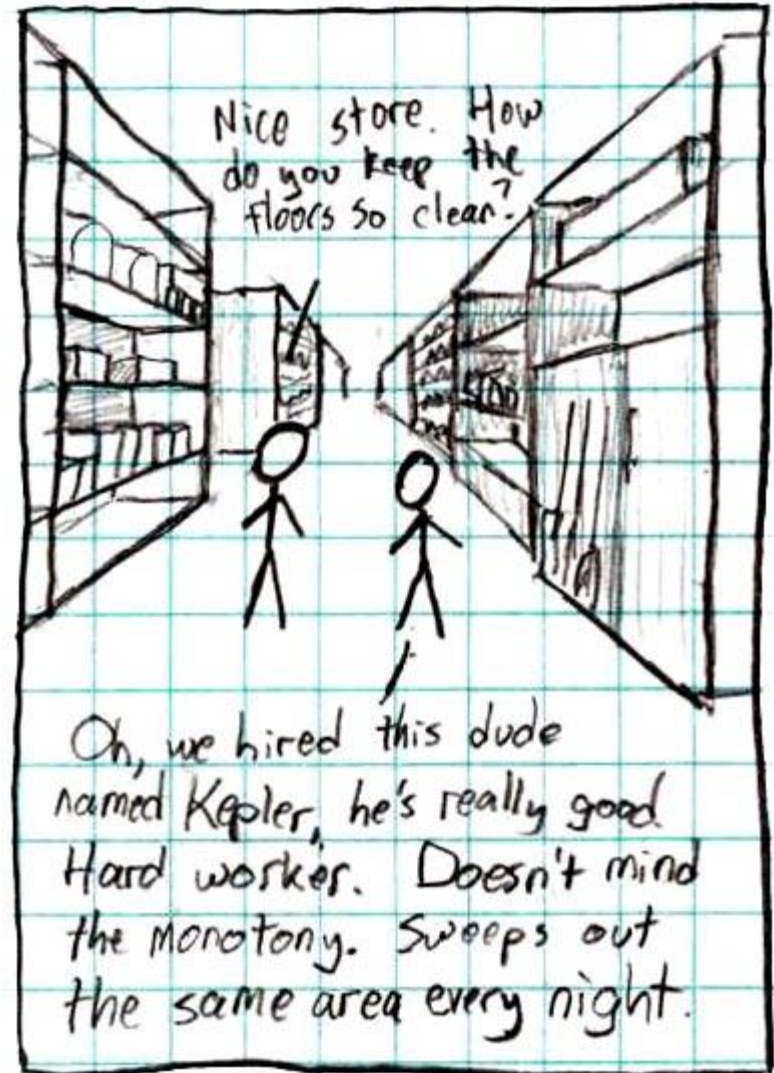 Nice store. How
do you keep the
floors so clean?
Oh, we hired this dude
named Kepler, he's really good.
Hard worker. Doesn't mind
the monotony. Sweeps out
the same area every night.